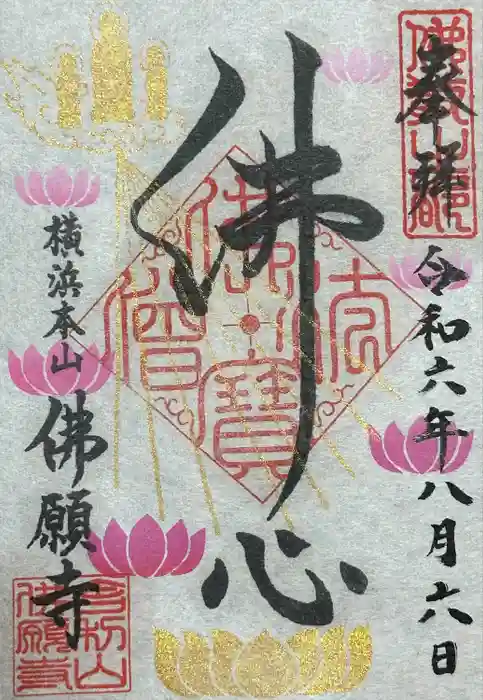 奉拝
令和六年八月六日
佛心
佛法僧寳
横浜本山
佛願寺